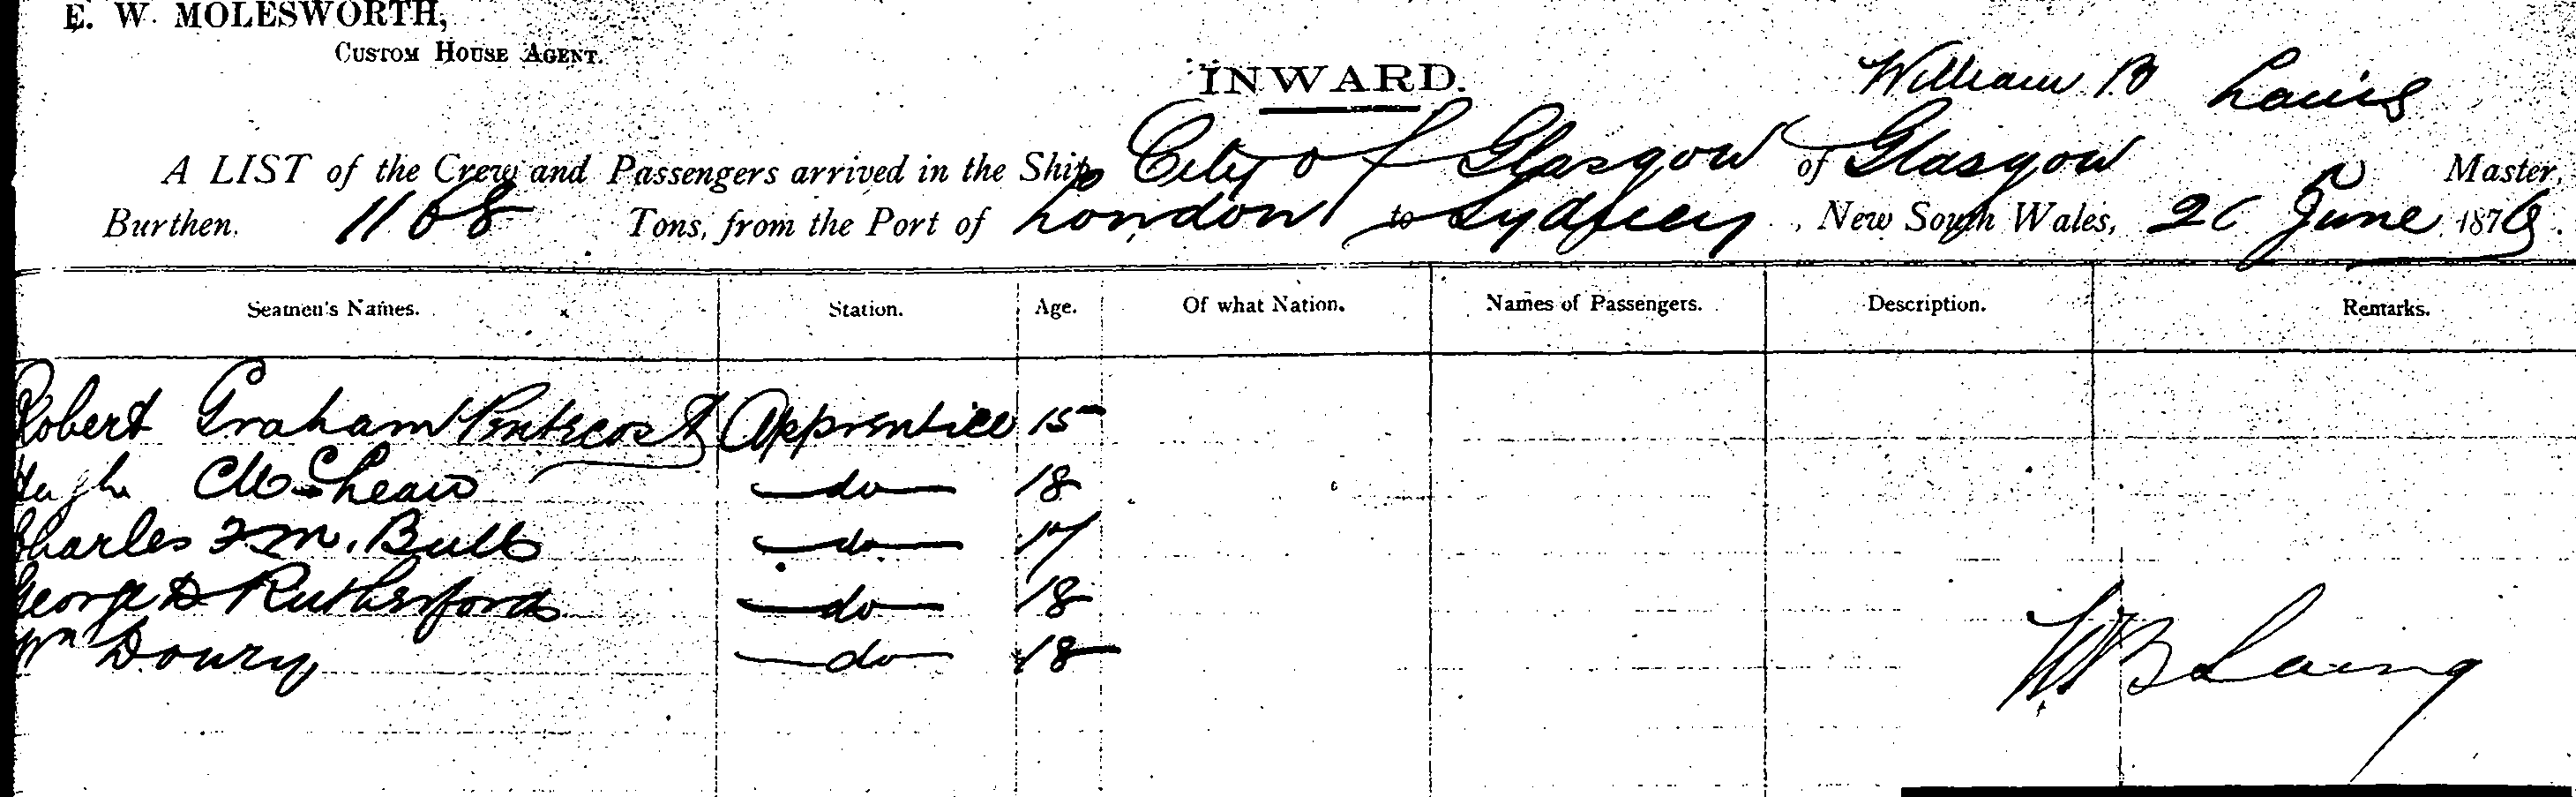 E. W. MOLESWORTH,
CUSTOM HOUSE AGENT.
INWARD.
William B Laing
A LIST of the Crew and Passengers arrived in the Ship City of Glasgow of Glasgow Master,
Burthen. 1168 Tons, from the Port of London to Sydney, New South Wales, June 1876.
Seamen's Names. Station. Age. Of what Nation. Names of Passengers. Description. Remarks.
Robert Graham Pentecost Apprentice 15
Hugh do 18
Charles F M. Bull do 17
George D Rutherford do 18
Wm Dowry do 18
W B Laing